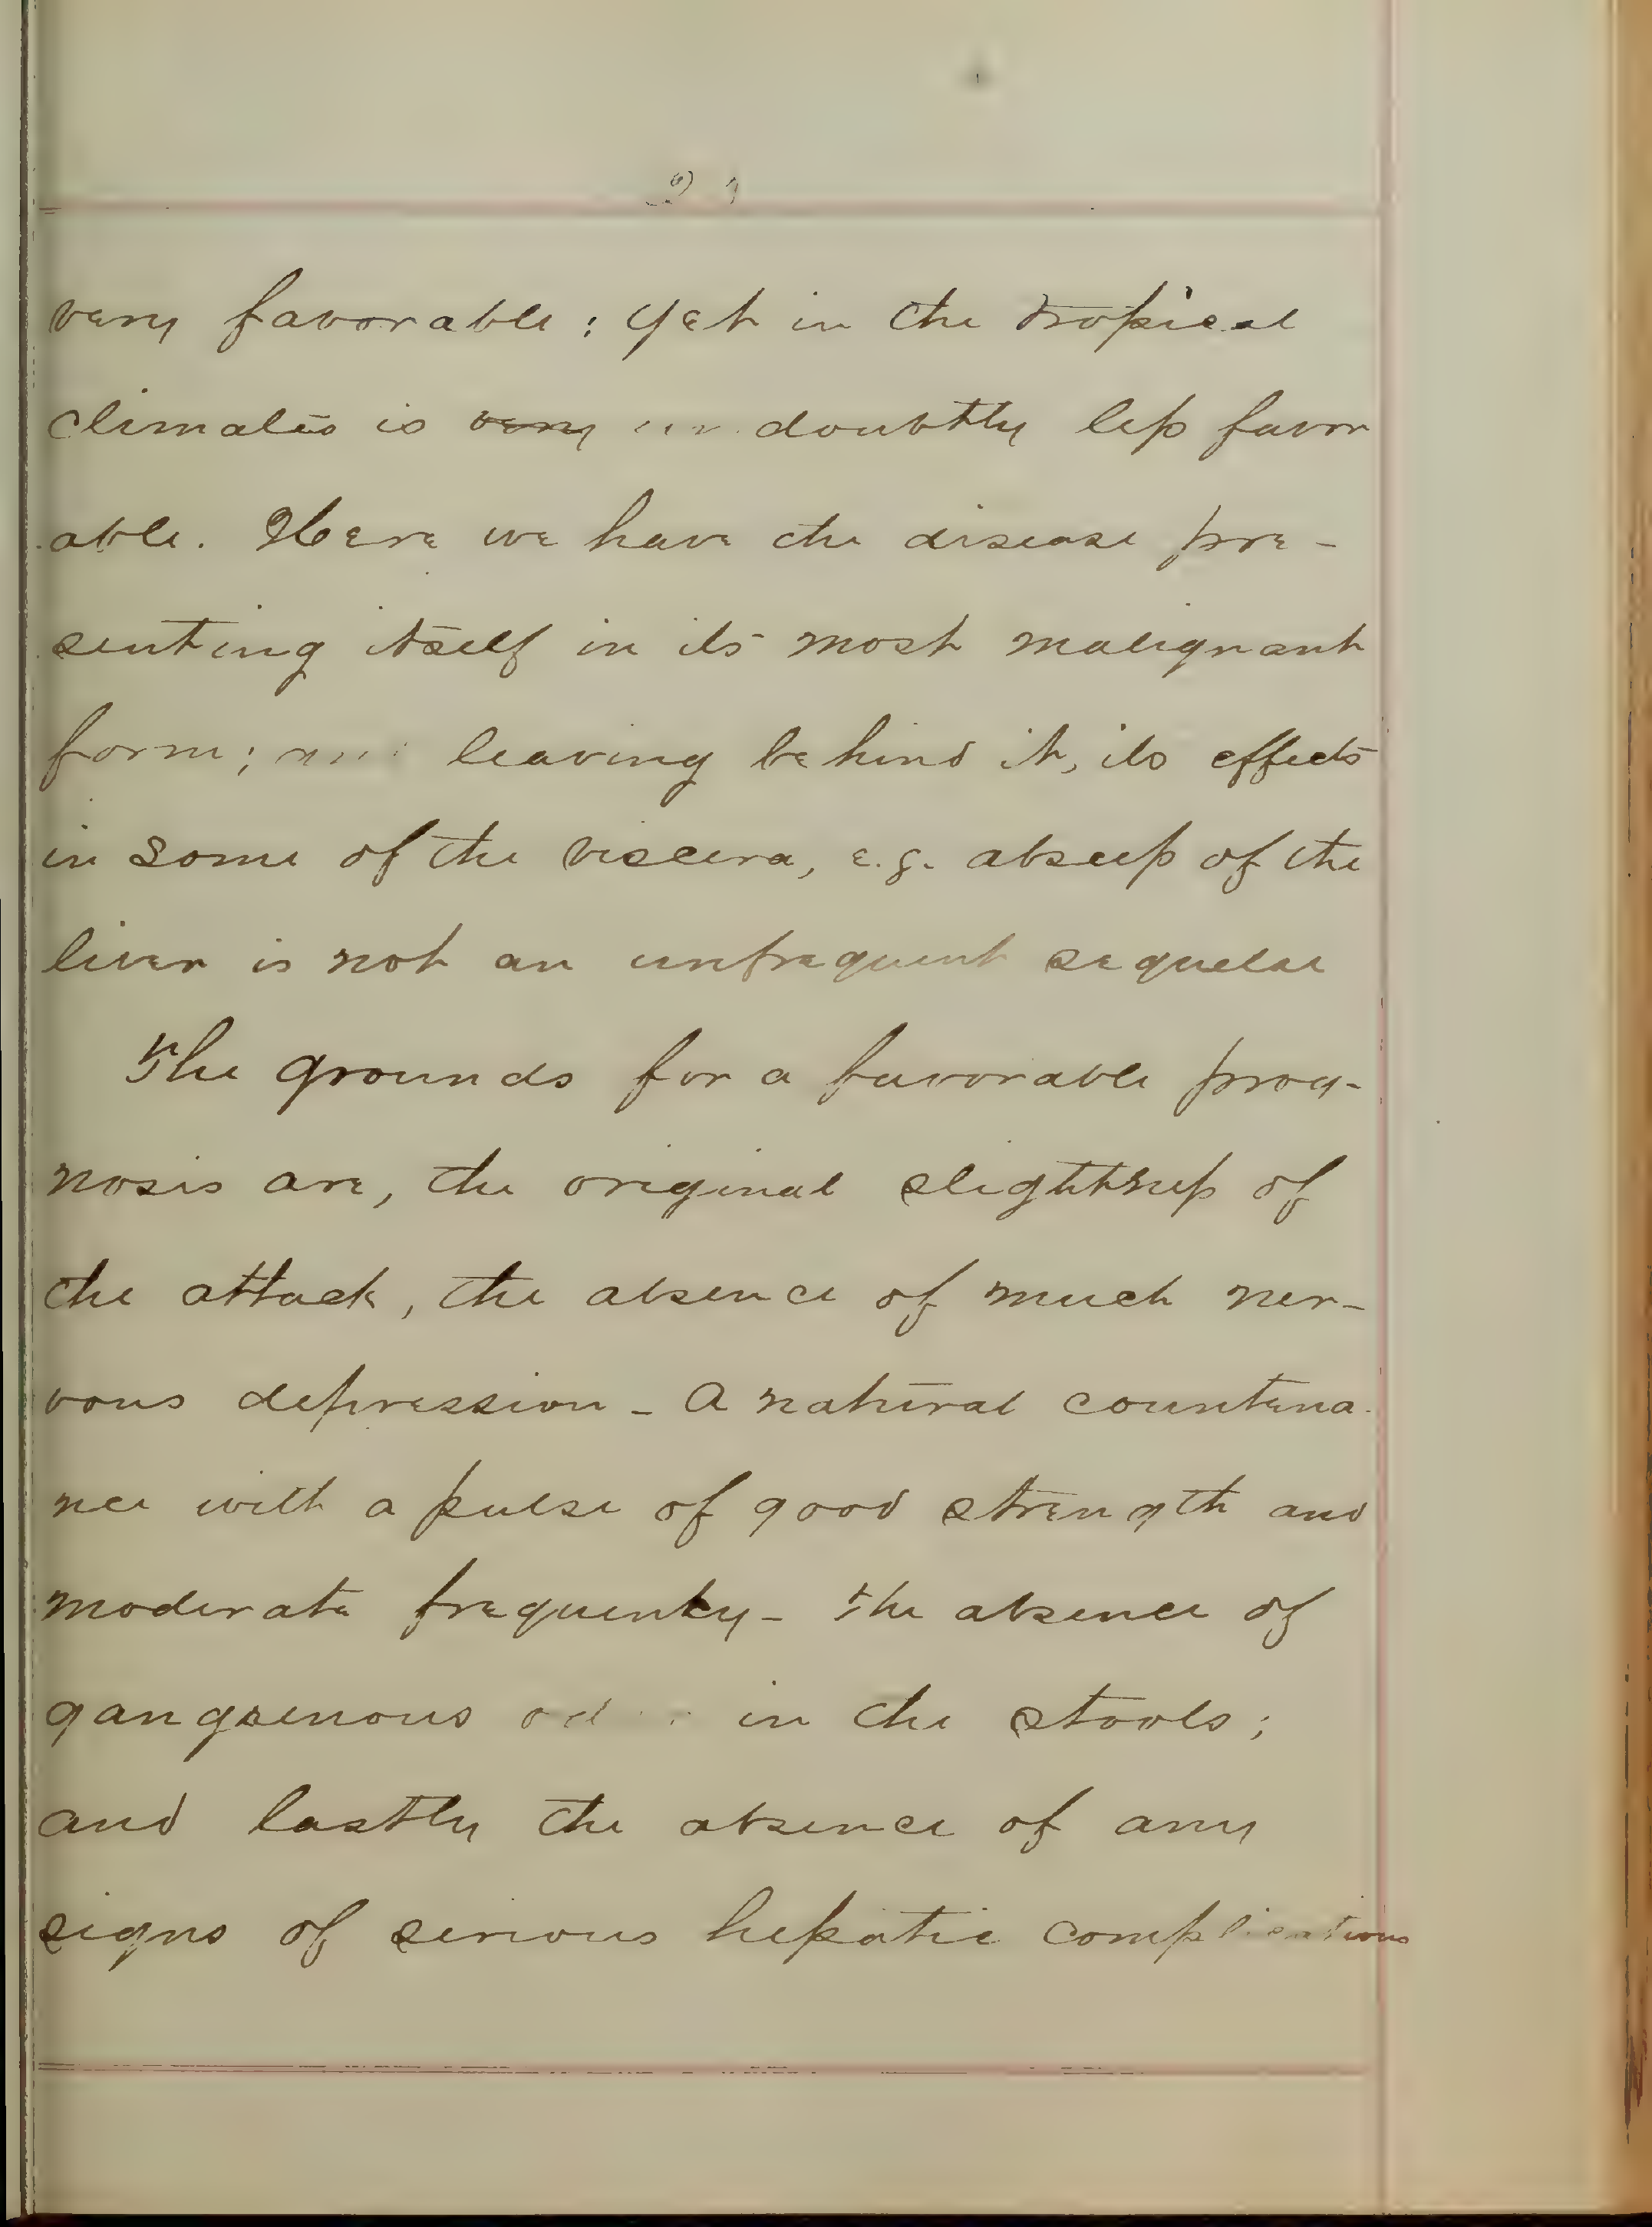 very favorable; yet in the tropical
climates is ~~very~~ undoubtly less favor
able. Here we have the disease pre-
senting itself in its most malignant
form; leaving behind it, its effects
in some of the viscera, e.g. abscess of the
liver is not an unfrequent sequelae
The grounds for a favorable prog-
nosis are, the original slightness of
the attack, the absence of much ner-
vous depression - A natural countena
nce with a pulse of good strength and
moderate frequency - The absence of
gangrenous in the stools;
and lastly the absence of any
signs of serious hepatic complications